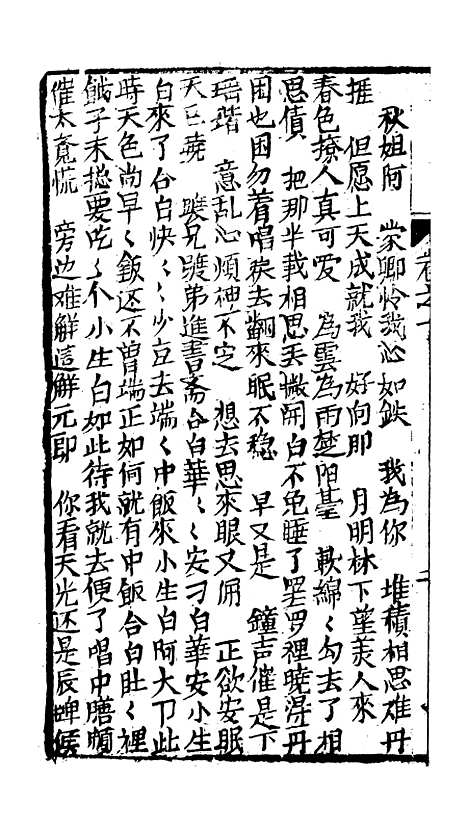 秋姐阿　蒙卿怜我沁如鉄　我為你　堆積相思难丹
推　但愿上天成就我　好向即　月明林下望羙人來
春色撩人真可爱　為雲為雨楚陽臺　軟綿〻勾去了相
思債　把那半载相思丢撇開白不免睡了罢罗裡曉得丹
困也困勿着唱矣去翻來眠不稳　早又是　鐘声催是下
瑶增　意乱沁煩神不定　想去思來眼又俑　正欲安眠
天已曉　㘉兄㘉弟進書斋合白華〻安刁白華安小生
白來了合白快〻〻少豆去端〻中飯來小生白阿大丁此
時天色尚早〻飯还不曾端正如何就有中飯合白肚〻裡
餓子末捴要吃〻个小生白如此待我就去便了唱中膳頻
催太覔慌　旁边难解這解元郎　你看天光还是辰牌侯